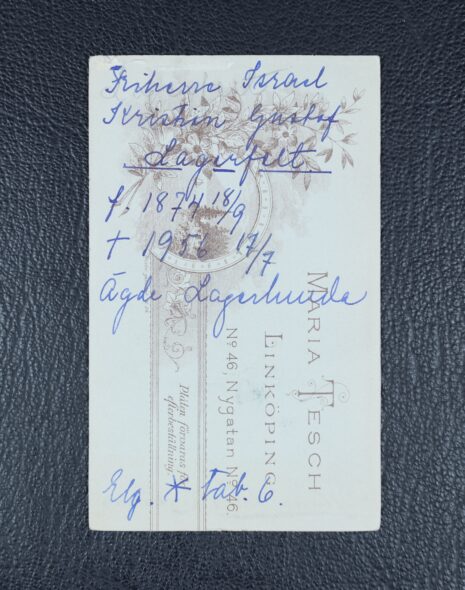 Friherre Israel
Kristian Gustaf
Lagerfelt
f. 1874 18/9
† 1956 17/7
Ägde Lagerlunda
Elg. * Tab. 6.
MARIA TESCH
LINKÖPING
No 46, Nygatan No 46.
Plåten förvaras för
efterbeställning.